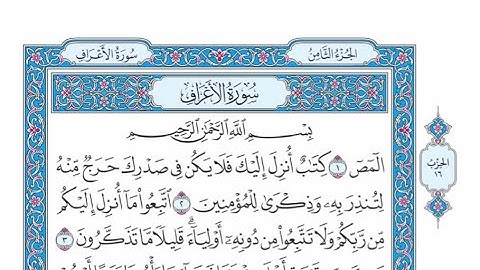 الجُزءُ الثَّامِنُ
سُورَةُ الأَعۡرَافِ
سُورَةُ الأَعۡرَافِ
بِسۡمِ ٱللَّهِ ٱلرَّحۡمَٰنِ ٱلرَّحِيمِ
الٓمٓصٓ ١ كِتَٰبٌ أُنزِلَ إِلَيۡكَ فَلَا يَكُن فِي صَدۡرِكَ حَرَجٞ مِّنۡهُ
لِتُنذِرَ بِهِۦ وَذِكۡرَىٰ لِلۡمُؤۡمِنِينَ ٢ ٱتَّبِعُواْ مَآ أُنزِلَ إِلَيۡكُم
مِّن رَّبِّكُمۡ وَلَا تَتَّبِعُواْ مِن دُونِهِۦٓ أَوۡلِيَآءَۗ قَلِيلٗا مَّا تَذَكَّرُونَ ٣
الحِزۡبُ
١٦